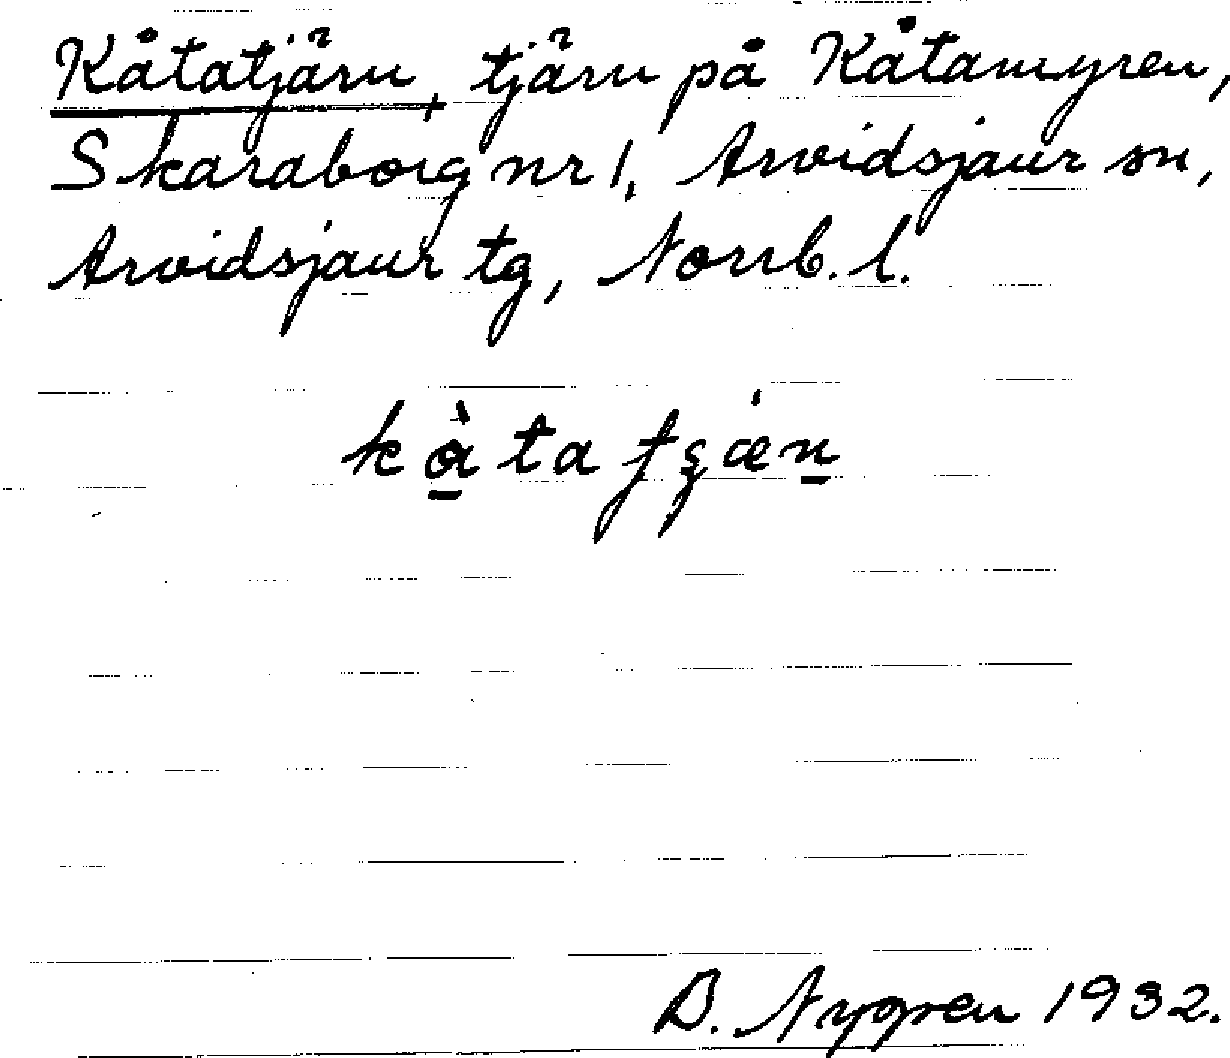 Kåtatjärn, tjärn på Kåtamyren,
Skaraborg nr 1, Arvidsjaur sn,
Arvidsjaur tg, Norrb. l.
B. Nygren 1932.